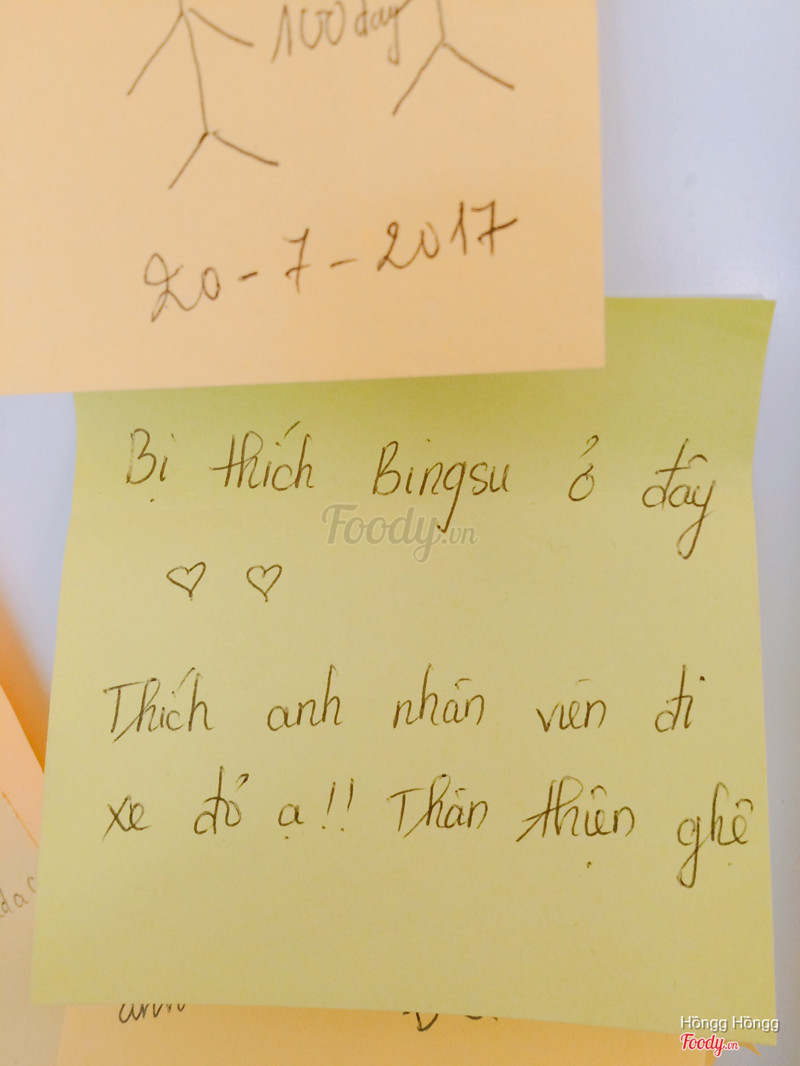 100 day
20-7-2017
Bị thích Bingsu ở đây
♡ ♡
Foody.vn
Thích anh nhân viên đi
xe đỏ ạ!! Thân thiện ghê
anh
Hồngg Hồngg
Foody.vn